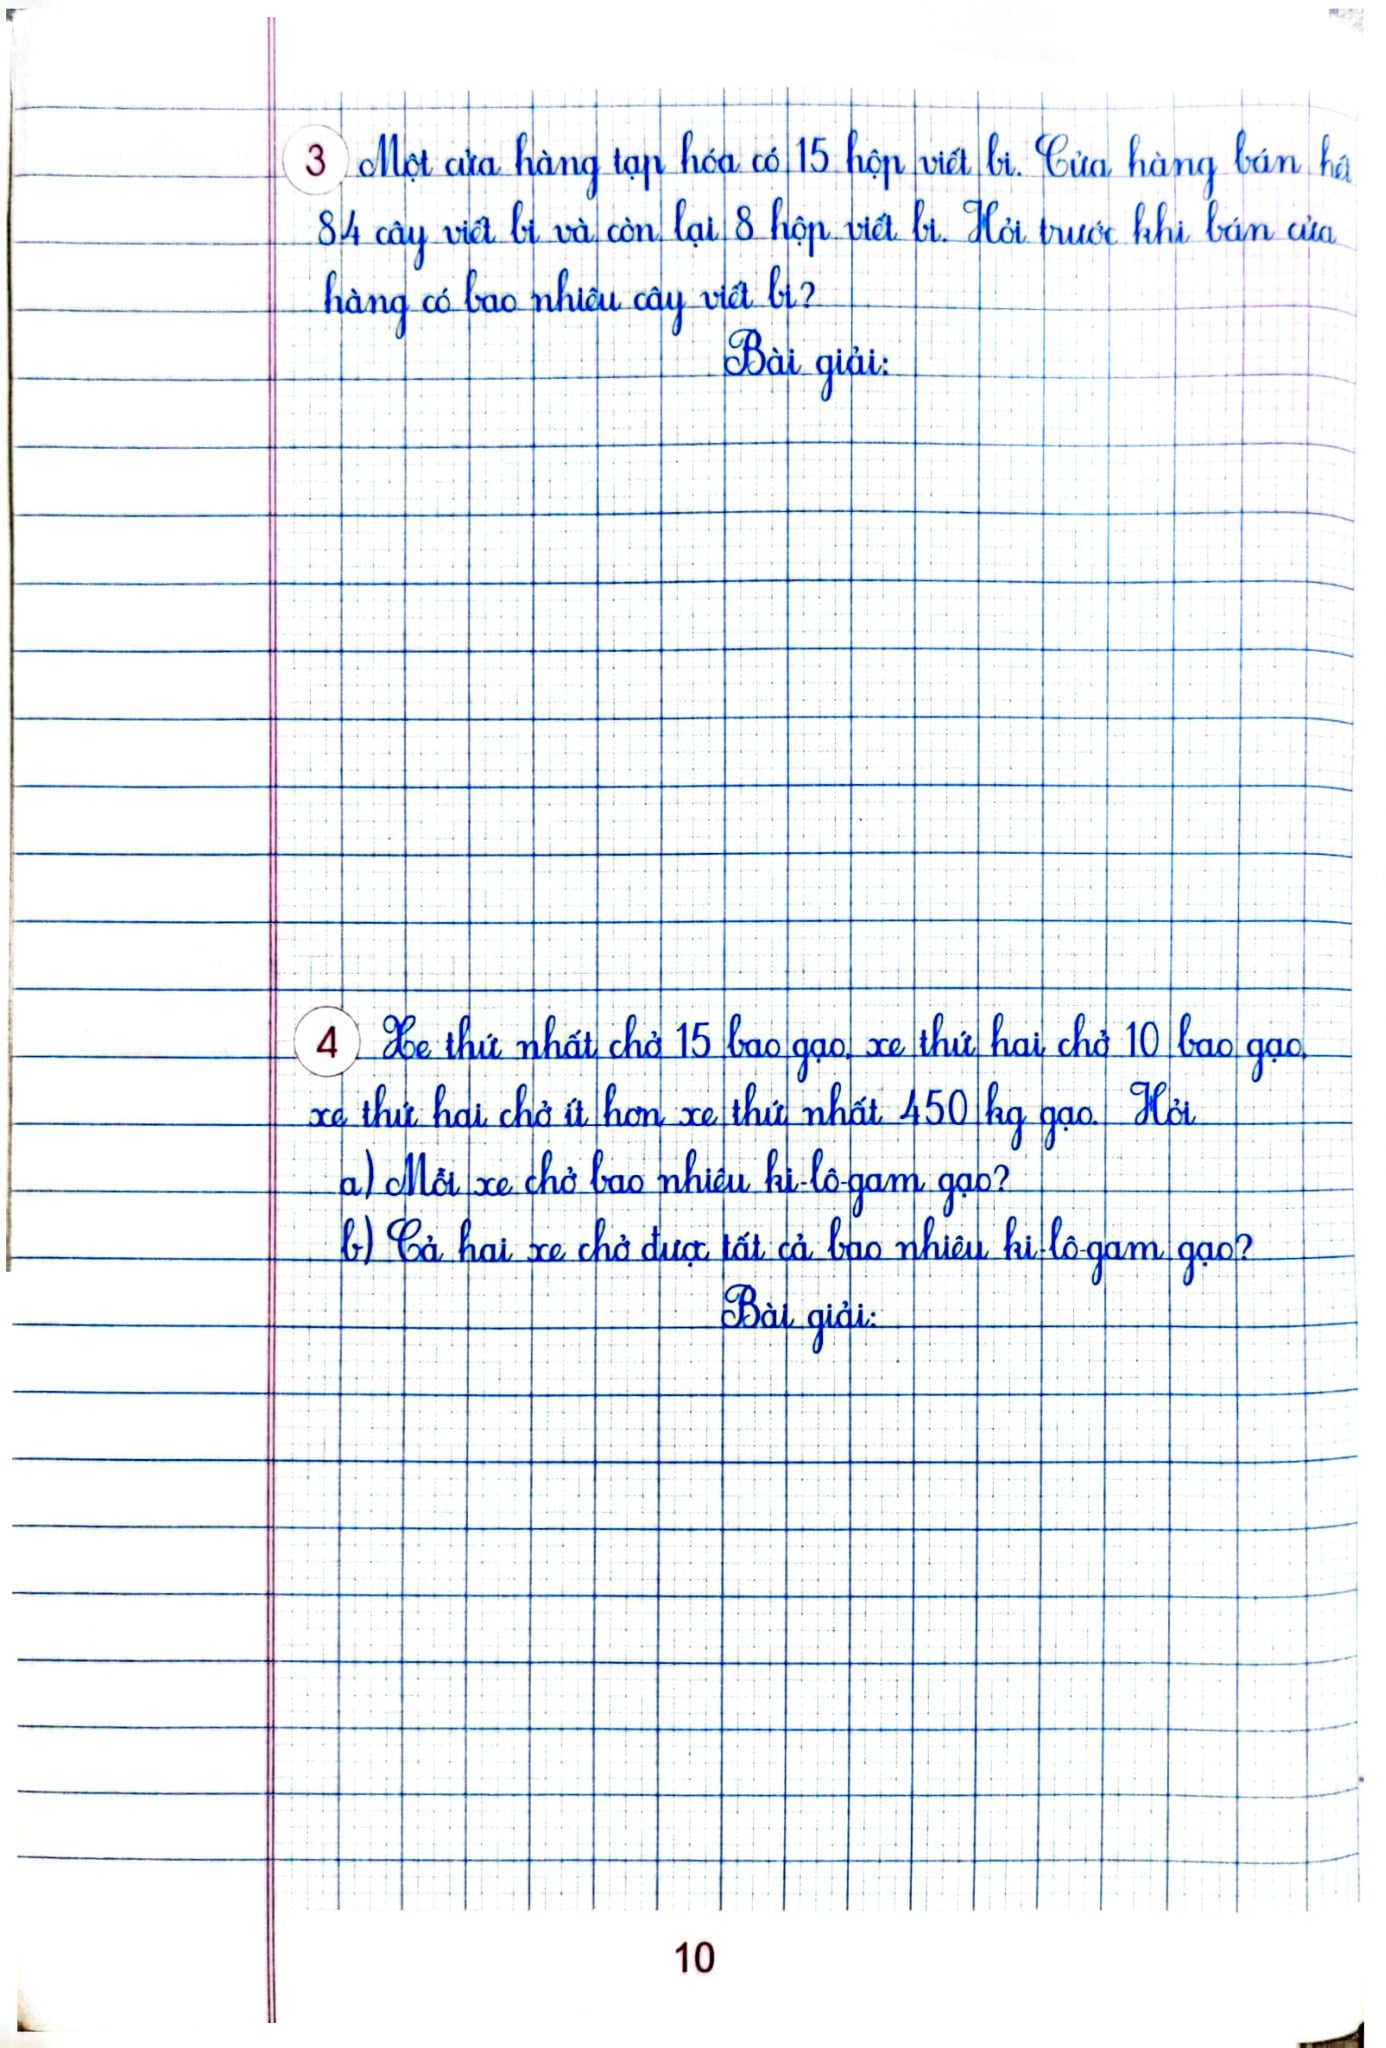 3 Một cửa hàng tạp hóa có 15 hộp viết bi. Cửa hàng bán
84 cây viết bi và còn lại 8 hộp viết bi. Hỏi trước khi bán cửa
hàng có bao nhiêu cây viết bi?
Bài giải:
4 Xe thứ nhất chở 15 bao gạo, xe thứ hai chở 10 bao gạo,
xe thứ hai chở ít hơn xe thứ nhất 450 kg gạo. Hỏi
a) Mỗi xe chở bao nhiêu ki-lô-gam gạo?
b) Cả hai xe chở được tất cả bao nhiêu ki-lô-gam gạo?
Bài giải:
10